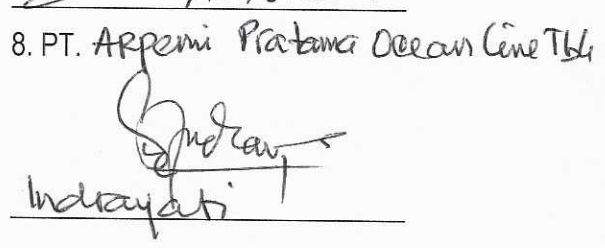 8. PT. Arpeni Pratama Ocean Line Tbk
Indrayati